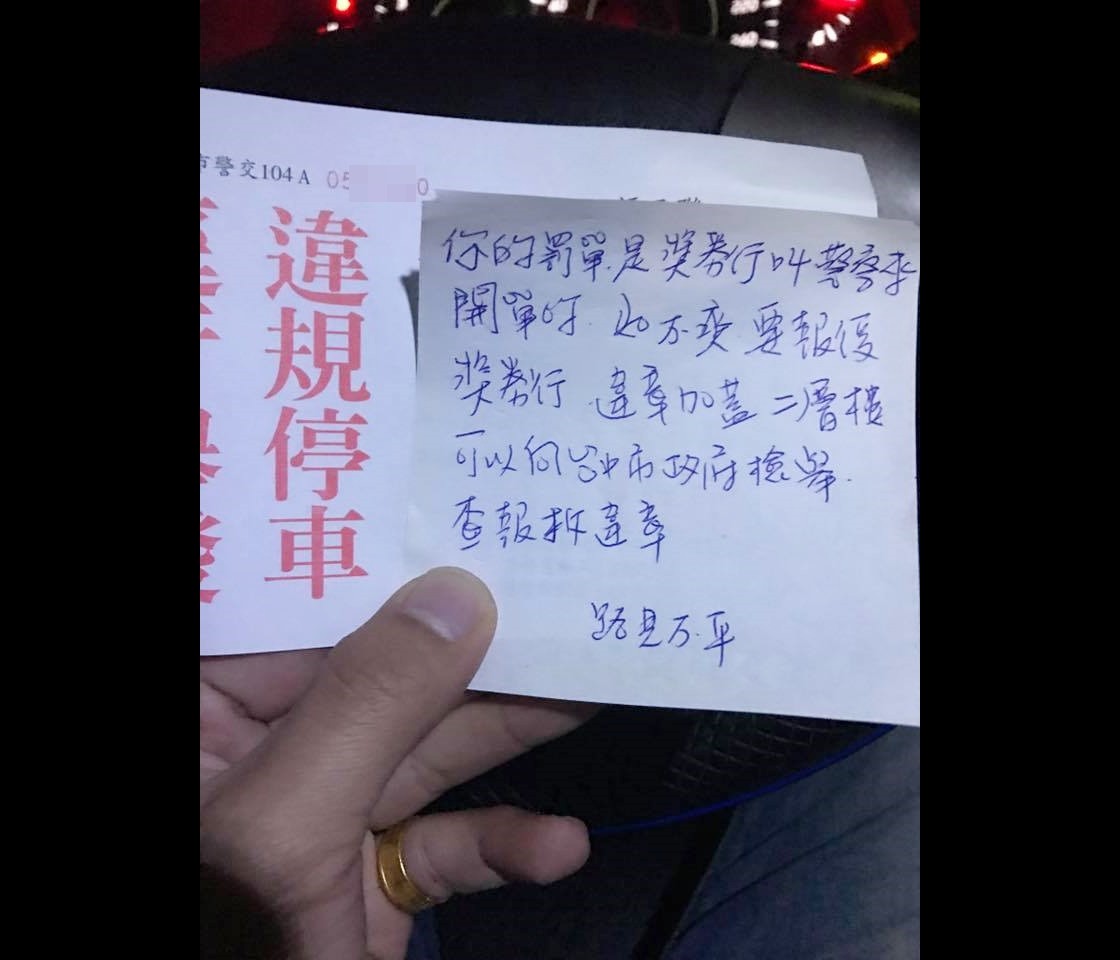 市警交104A 05 0
違規停車
你的罰單是獎券行叫警察來
開單的 心不爽要報復
獎券行 違章加蓋二層樓
可以向台中市政府檢舉.
查報拆違章
路見不平